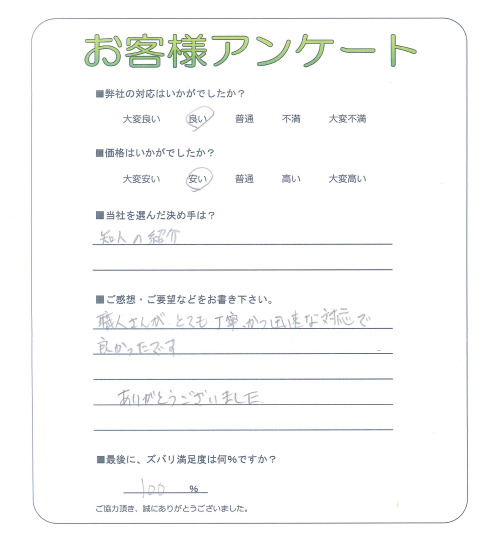 お客様アンケート
■弊社の対応はいかがでしたか？
大変良い 良い 普通 不満 大変不満
■価格はいかがでしたか？
大変安い 安い 普通 高い 大変高い
■当社を選んだ決め手は？
知人の紹介
■ご感想・ご要望などをお書き下さい。
職人さんが とても丁寧、かつ迅速な対応で
良かったです
ありがとうございました
■最後に、ズバリ満足度は何%ですか？
100 %
ご協力頂き、誠にありがとうございました。